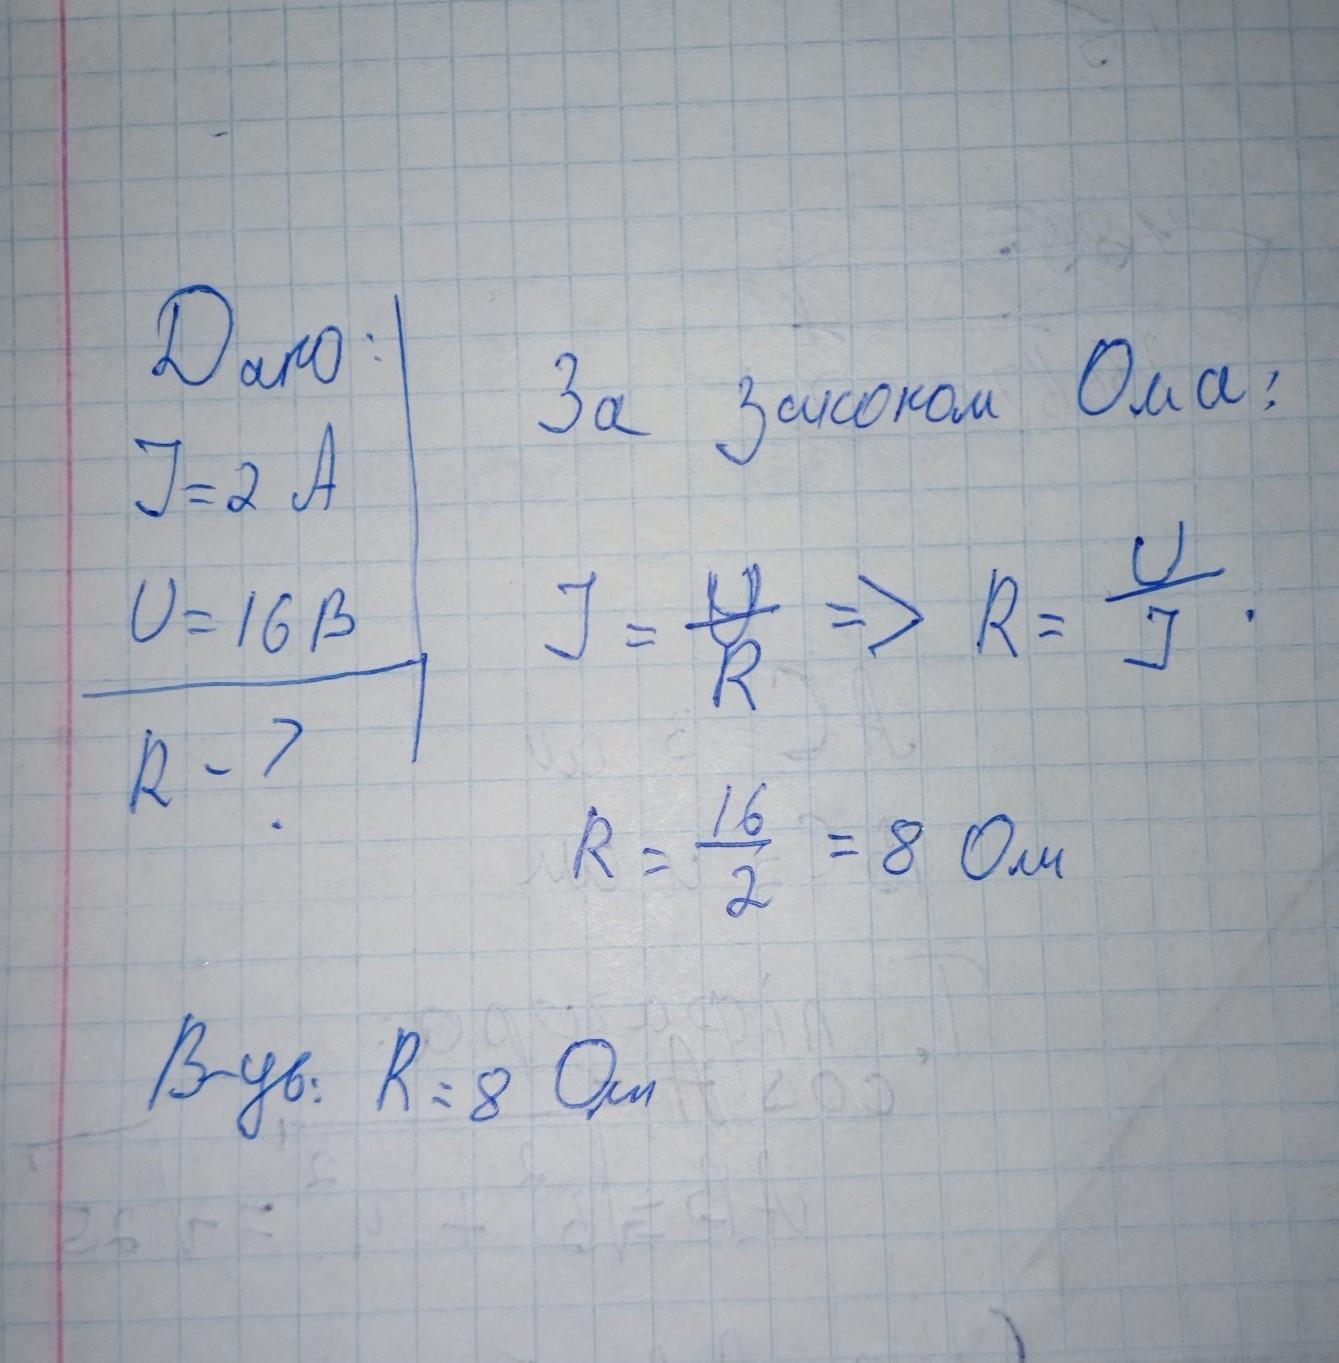 Дано:
I=2 А
U=16В
R-?
За законом Ома:
I = U/R => R = U/I.
R = 16/2 = 8 Ом
В-дь: R=8 Ом